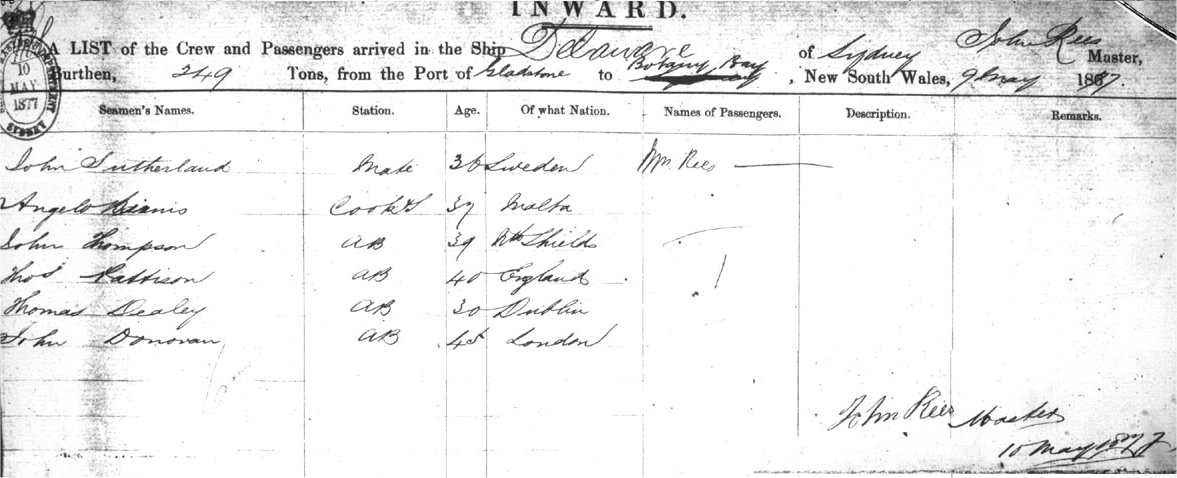 INWARD.
A LIST of the Crew and Passengers arrived in the Ship Delaware of Sydney John Rees Master,
Burthen, 249 Tons, from the Port of Gladstone to Botany Bay, New South Wales, 9 May 1877.
10
MAY
1877
SYDNEY
Seamen's Names. Station. Age. Of what Nation. Names of Passengers. Description. Remarks.
John Sutherland Mate 36 Sweden Mrs. Rees
Angelo Cook & S 37 Malta
John Thompson AB 39 Nth Shields
Thos Pattison AB 40 England
Thomas Dealey AB 30 Dublin
John Donovan AB London
John Rees Master
10 May 1877